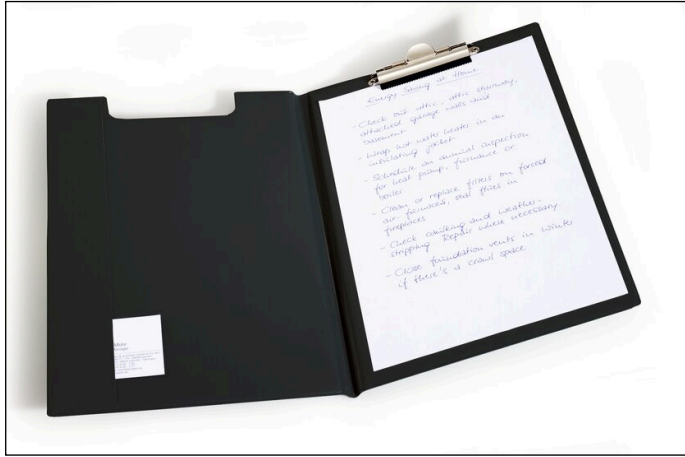 Energy Saving at Home
- Check out attic, attic stairway,
attached garage walls and
basement
- Wrap hot water heater in an
insulating jacket
- Schedule an annual inspection
for heat pump, furnance or
boiler
- Clean or replace filters on forced
air furnaces, seal flues in
fireplaces
- Check caulking and weather-
stripping Repair where necessary
- Close foundation vents in winter
if there's a crawl space